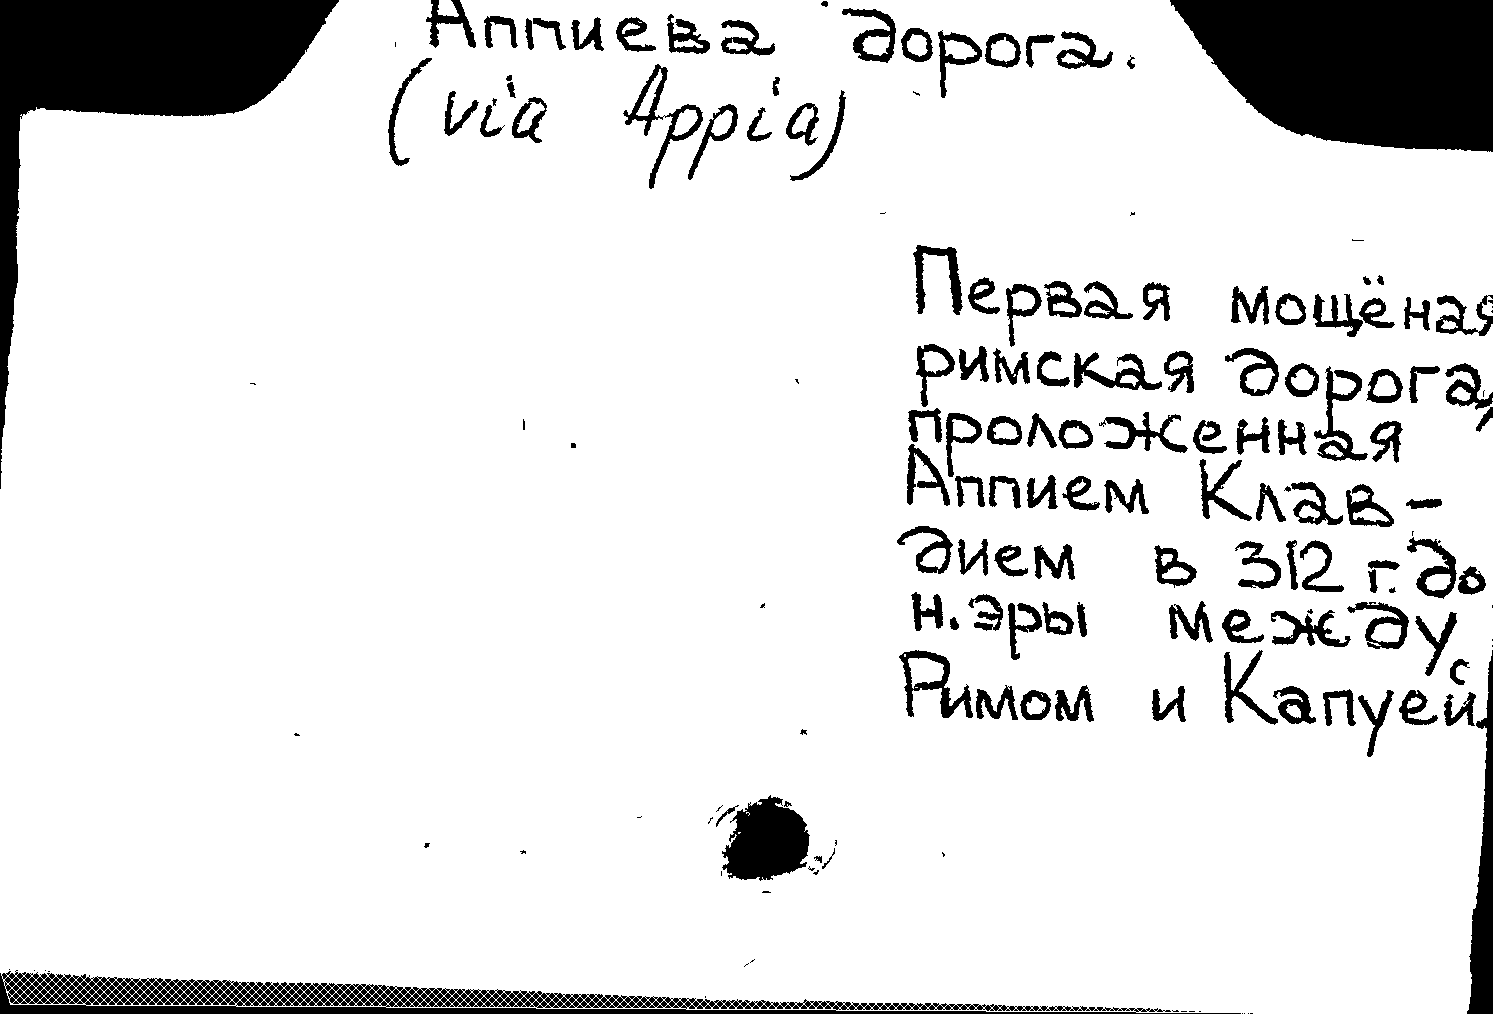 Аппиева дорога.
(via Appia)
Первая мощёная
римская дорога,
проложенная
Аппием Клав-
дием в 312 г. до
н. эры между
Римом и Капуей.